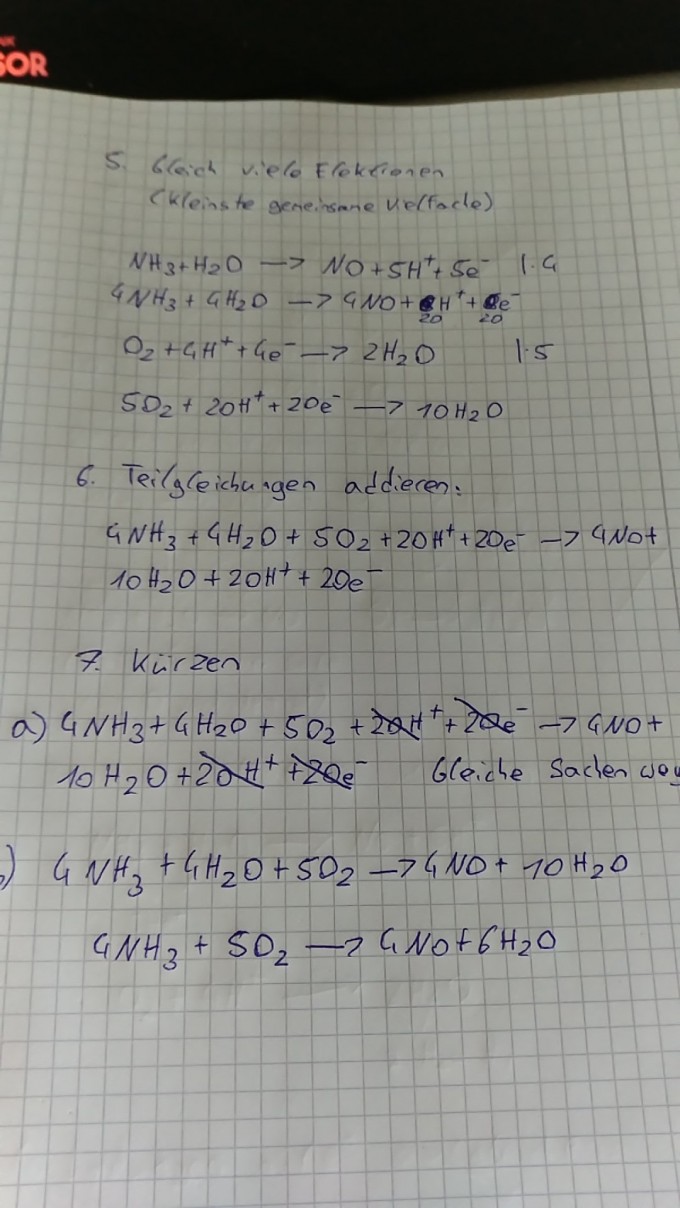 SOR
5. Gleich viele Elektronen
(kleinste gemeinsame Vielfache)
NH₃+H₂O → NO+5H⁺+5e⁻ |·4
4NH₃+4H₂O → 4NO+20H⁺+20e⁻
O₂+4H⁺+4e⁻ → 2H₂O |·5
5O₂+20H⁺+20e⁻ → 10H₂O
6. Teilgleichungen addieren:
4NH₃+4H₂O+5O₂+20H⁺+20e⁻ → 4NO+
10H₂O+20H⁺+20e⁻
7. Kürzen
a) 4NH₃+4H₂O+5O₂+20H⁺+20e⁻ → 4NO+
10H₂O+20H⁺+20e⁻ Gleiche Sachen weg
) 4NH₃+4H₂O+5O₂ → 4NO+10H₂O
4NH₃+5O₂ → 4NO+6H₂O